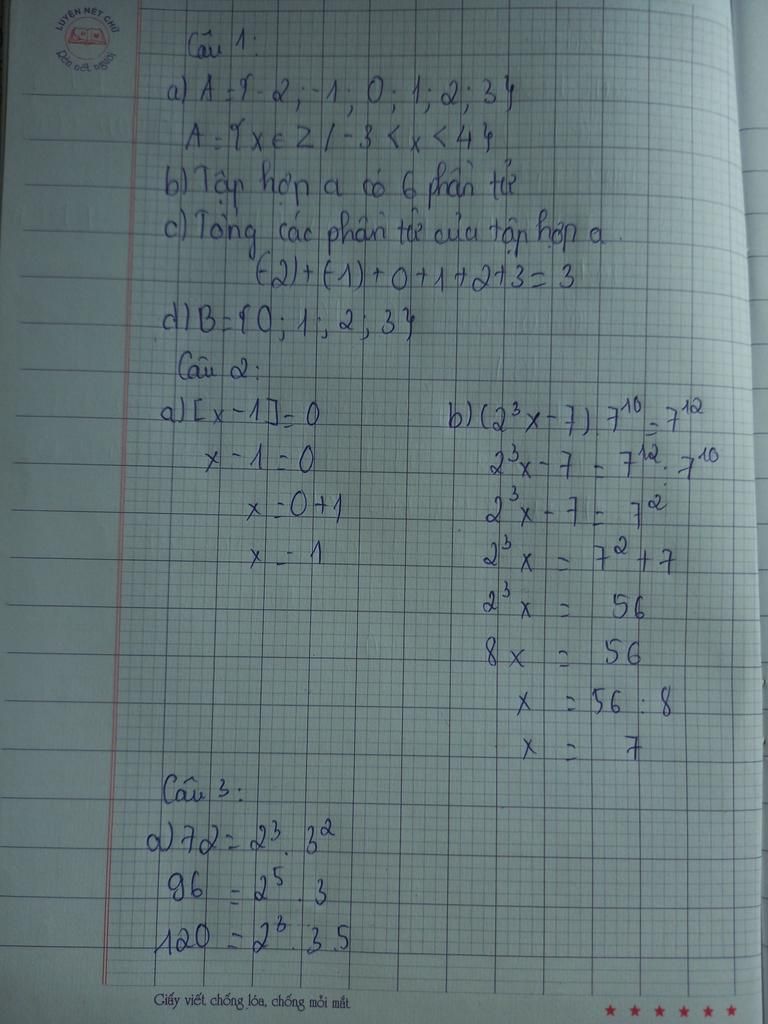 LUYỆN NÉT CHỮ
RÈN NẾT NGƯỜI
Câu 1:
a) A = {-2; -1; 0; 1; 2; 3}
A = {x ∈ Z / -3 < x < 4}
b) Tập hợp a có 6 phần tử
c) Tổng các phần tử của tập hợp a.
(-2) + (-1) + 0 + 1 + 2 + 3 = 3
d) B = {0; 1; 2; 3}
Câu 2:
a) [x - 1] = 0
x - 1 = 0
x = 0 + 1
x = 1
b) (2³x - 7) 7¹⁰ = 7¹²
2³x - 7 = 7¹² : 7¹⁰
2³x - 7 = 7²
2³x = 7² + 7
2³x = 56
8x = 56
x = 56 : 8
x = 7
Câu 3:
a) 72 = 2³. 3²
96 = 2⁵. 3
120 = 2³. 3 5
Giấy viết chống lóa, chống mỏi mắt